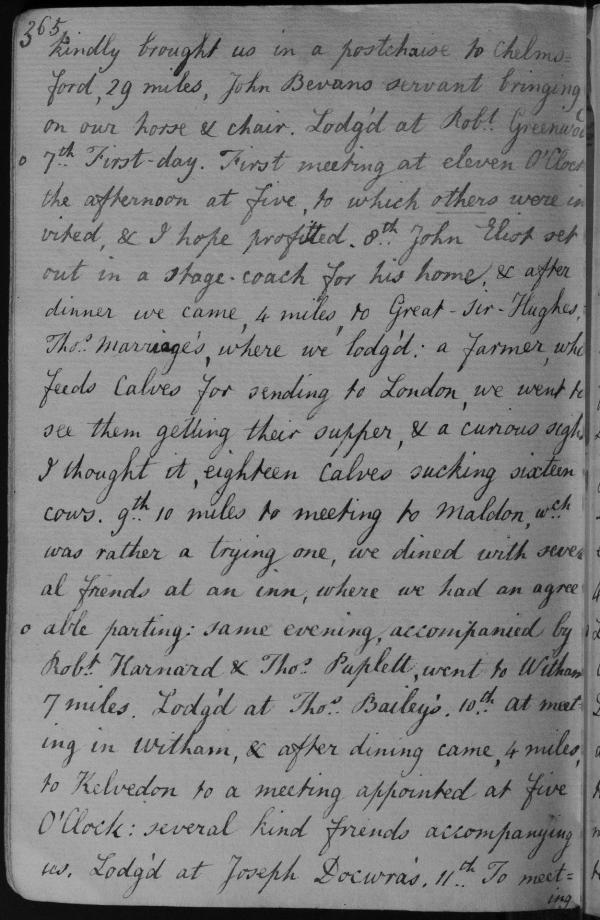 365
kindly brought us in a postchaise to Chelms=
ford, 29 miles, John Bevans servant bringing
on our horse & chair. Lodg'd at Robt. Greenwoo
o 7th First-day. First meeting at eleven O'Clock
the afternoon at five, to which others were in
vited, & I hope profitted. 8th John Eliot set
out in a stage-coach for his home, & after
dinner we came, 4 miles, to Great-Sir-Hughes,
Thos. Marriage's, where we lodg'd: a farmer, who
feeds Calves for sending to London, we went to
see them getting their supper, & a curious sight
I thought it, eighteen Calves sucking sixteen
cows. 9th 10 miles to meeting to Maldon, wch
was rather a trying one, we dined with sever
al friends at an inn, where we had an agree
o able parting: same evening, accompanied by
Robt. Harnard & Thos. Puplett, went to Witham
7 miles. Lodg'd at Thos. Bailey's. 10th at meet-
ing in Witham, & after dining came, 4 miles,
to Kelvedon to a meeting appointed at five
O'Clock: several kind friends accompanying
us. Lodg'd at Joseph Docwra's. 11th To meet=
ing